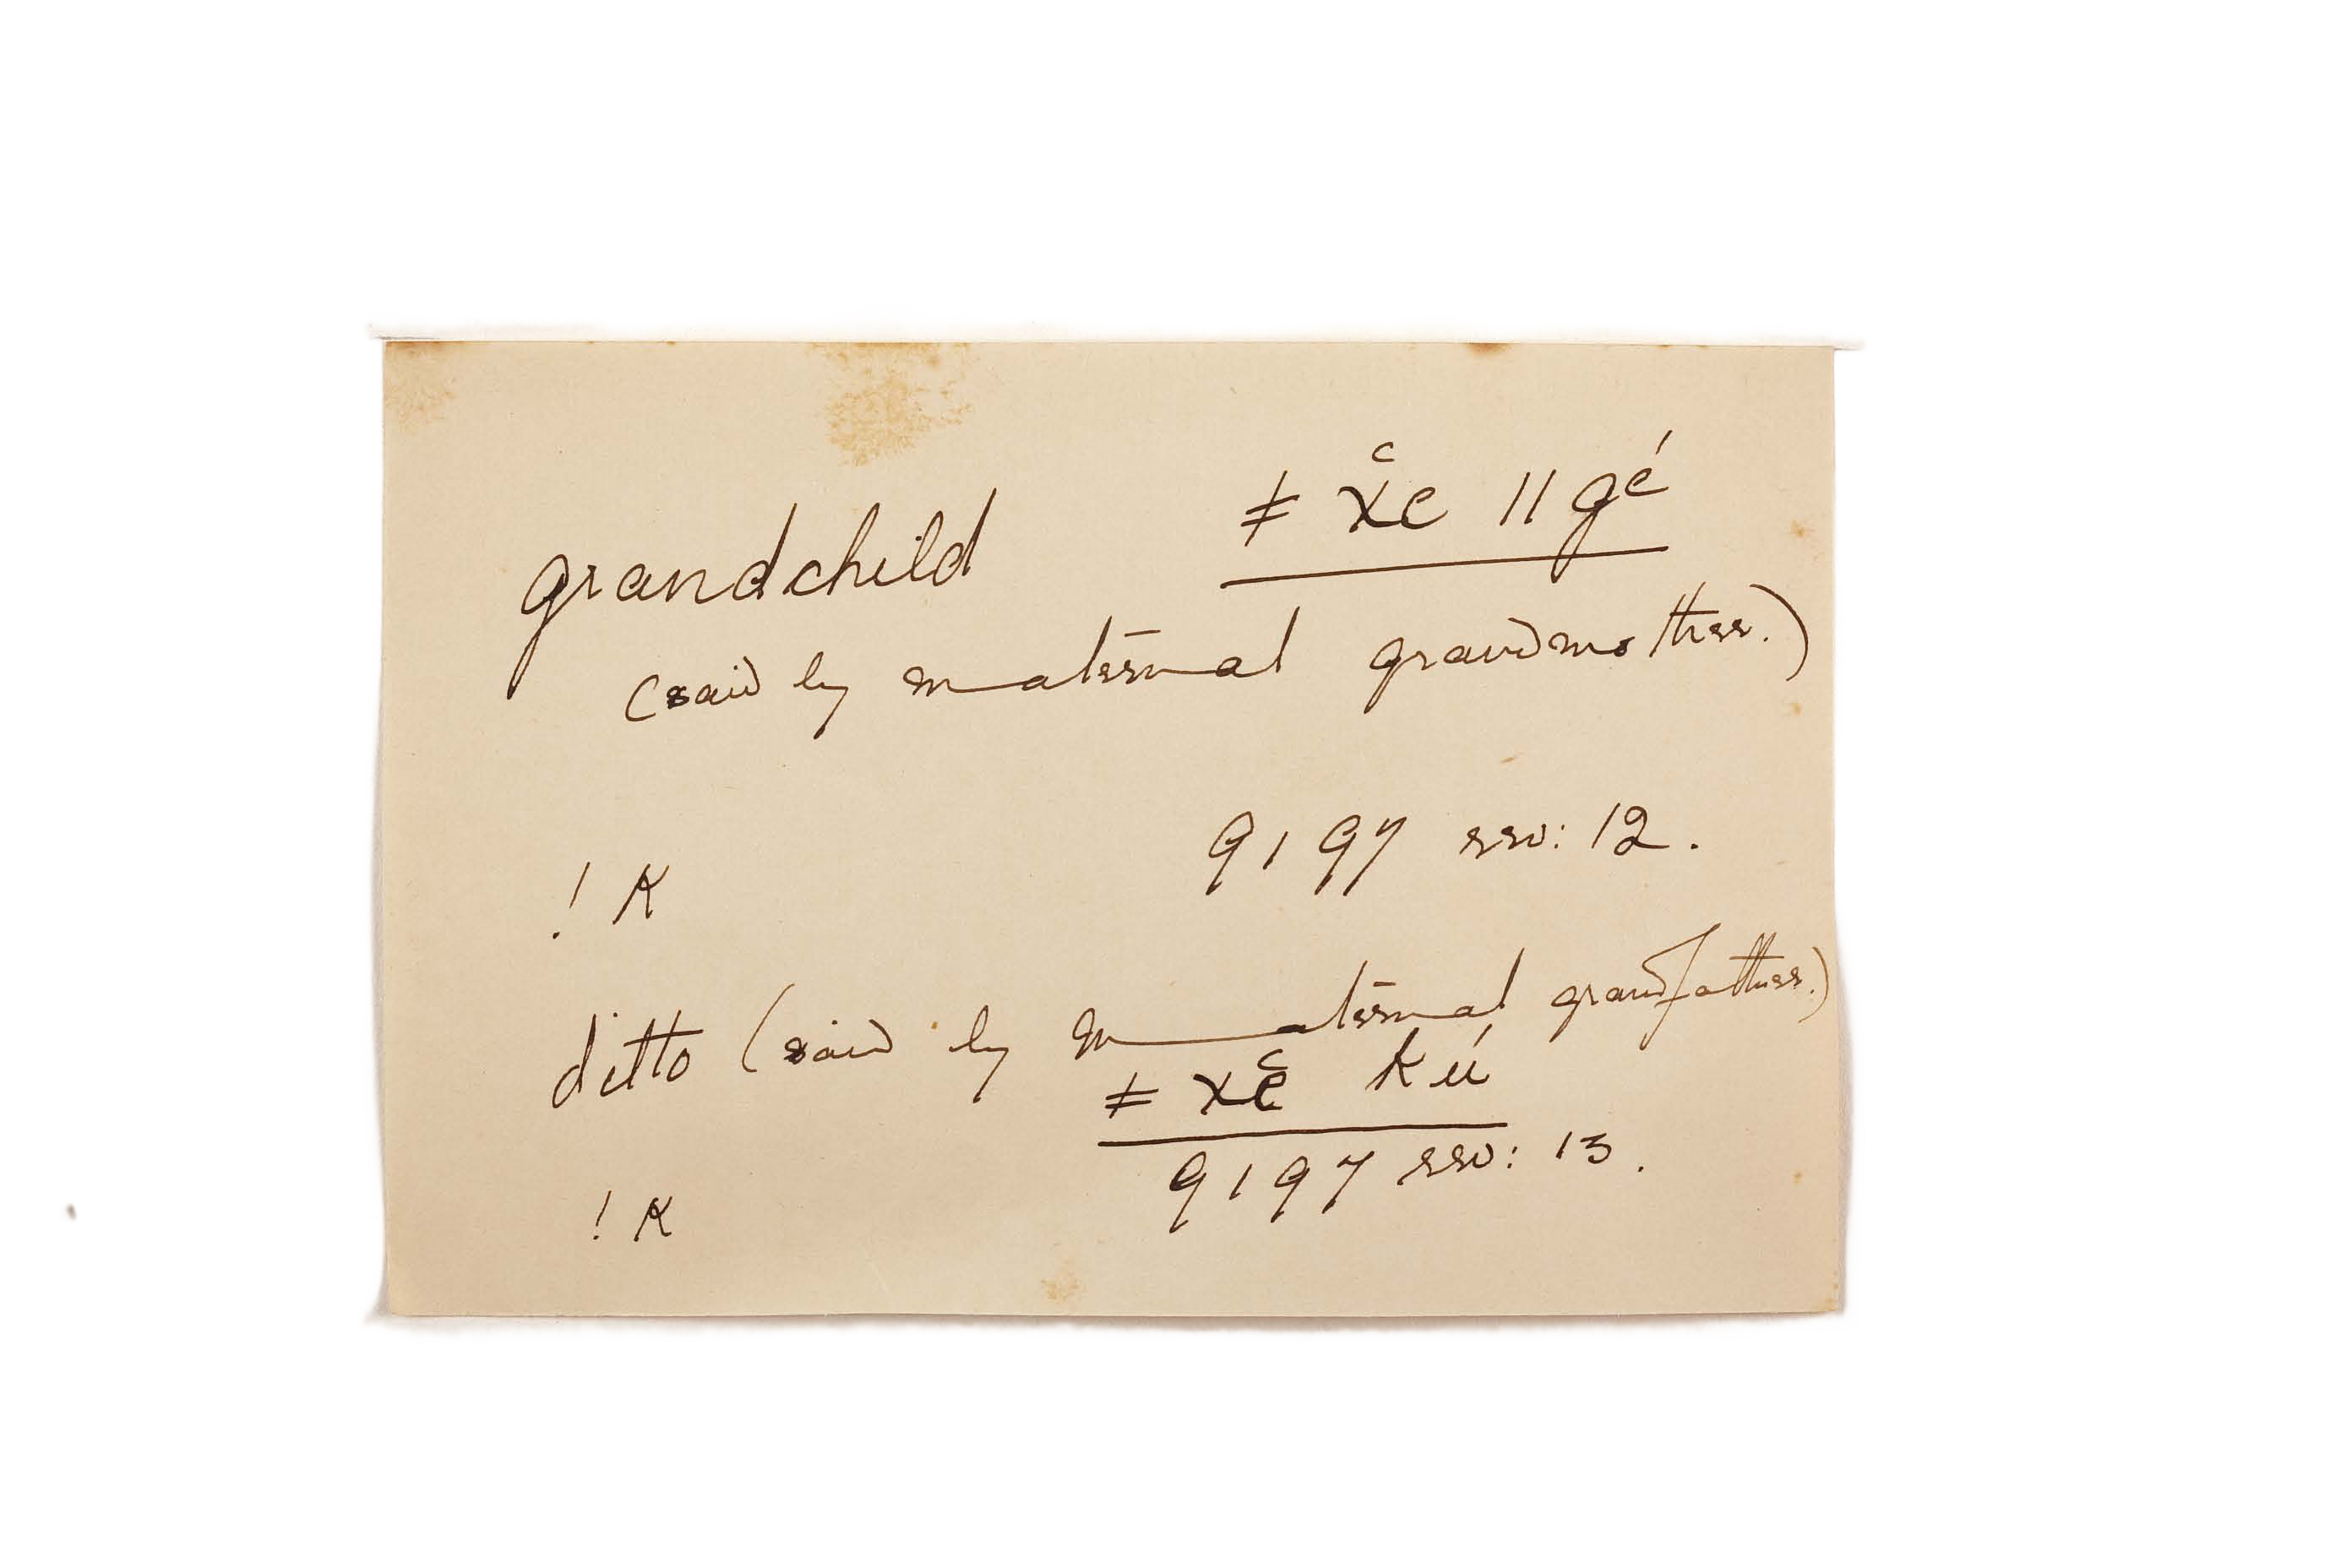 ǂ x̌ͨe ǁgé
grandchild
(said by maternal grandmother.)
9197 rev: 12.
! K
ditto (said by maternal grandfather.)
ǂ xĕͨ kú
9197 rev: 13.
! K